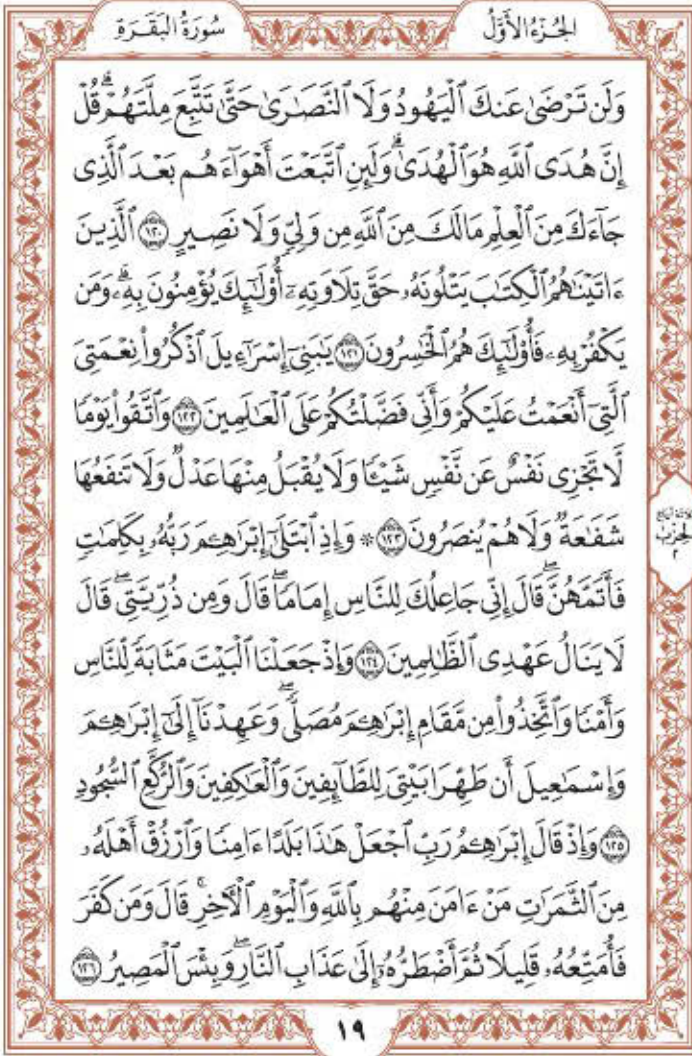 سُورَةُ البَقَرَةِ
الجُزْءُ الأَوَّلُ
وَلَن تَرْضَىٰ عَنكَ ٱلْيَهُودُ وَلَا ٱلنَّصَٰرَىٰ حَتَّىٰ تَتَّبِعَ مِلَّتَهُمْ ۗ قُلْ
إِنَّ هُدَى ٱللَّهِ هُوَ ٱلْهُدَىٰ ۗ وَلَئِنِ ٱتَّبَعْتَ أَهْوَآءَهُم بَعْدَ ٱلَّذِى
جَآءَكَ مِنَ ٱلْعِلْمِ مَا لَكَ مِنَ ٱللَّهِ مِن وَلِىٍّ وَلَا نَصِيرٍ ١٢٠ ٱلَّذِينَ
ءَاتَيْنَٰهُمُ ٱلْكِتَٰبَ يَتْلُونَهُۥ حَقَّ تِلَاوَتِهِۦٓ أُو۟لَٰٓئِكَ يُؤْمِنُونَ بِهِۦ ۗ وَمَن
يَكْفُرْ بِهِۦ فَأُو۟لَٰٓئِكَ هُمُ ٱلْخَٰسِرُونَ ١٢١ يَٰبَنِىٓ إِسْرَٰٓءِيلَ ٱذْكُرُوا۟ نِعْمَتِىَ
ٱلَّتِىٓ أَنْعَمْتُ عَلَيْكُمْ وَأَنِّى فَضَّلْتُكُمْ عَلَى ٱلْعَٰلَمِينَ ١٢٢ وَٱتَّقُوا۟ يَوْمًا
لَّا تَجْزِى نَفْسٌ عَن نَّفْسٍ شَيْـًٔا وَلَا يُقْبَلُ مِنْهَا عَدْلٌ وَلَا تَنفَعُهَا
شَفَٰعَةٌ وَلَا هُمْ يُنصَرُونَ ١٢٣ ۞ وَإِذِ ٱبْتَلَىٰٓ إِبْرَٰهِۦمَ رَبُّهُۥ بِكَلِمَٰتٍ
فَأَتَمَّهُنَّ ۖ قَالَ إِنِّى جَاعِلُكَ لِلنَّاسِ إِمَامًا ۖ قَالَ وَمِن ذُرِّيَّتِى ۖ قَالَ
لَا يَنَالُ عَهْدِى ٱلظَّٰلِمِينَ ١٢٤ وَإِذْ جَعَلْنَا ٱلْبَيْتَ مَثَابَةً لِّلنَّاسِ
وَأَمْنًا وَٱتَّخِذُوا۟ مِن مَّقَامِ إِبْرَٰهِۦمَ مُصَلًّى ۖ وَعَهِدْنَآ إِلَىٰٓ إِبْرَٰهِۦمَ
وَإِسْمَٰعِيلَ أَن طَهِّرَا بَيْتِىَ لِلطَّآئِفِينَ وَٱلْعَٰكِفِينَ وَٱلرُّكَّعِ ٱلسُّجُودِ
١٢٥ وَإِذْ قَالَ إِبْرَٰهِۦمُ رَبِّ ٱجْعَلْ هَٰذَا بَلَدًا ءَامِنًا وَٱرْزُقْ أَهْلَهُۥ
مِنَ ٱلثَّمَرَٰتِ مَنْ ءَامَنَ مِنْهُم بِٱللَّهِ وَٱلْيَوْمِ ٱلْءَاخِرِ ۖ قَالَ وَمَن كَفَرَ
فَأُمَتِّعُهُۥ قَلِيلًا ثُمَّ أَضْطَرُّهُۥٓ إِلَىٰ عَذَابِ ٱلنَّارِ ۖ وَبِئْسَ ٱلْمَصِيرُ ١٢٦
الحزب
٢
١٩